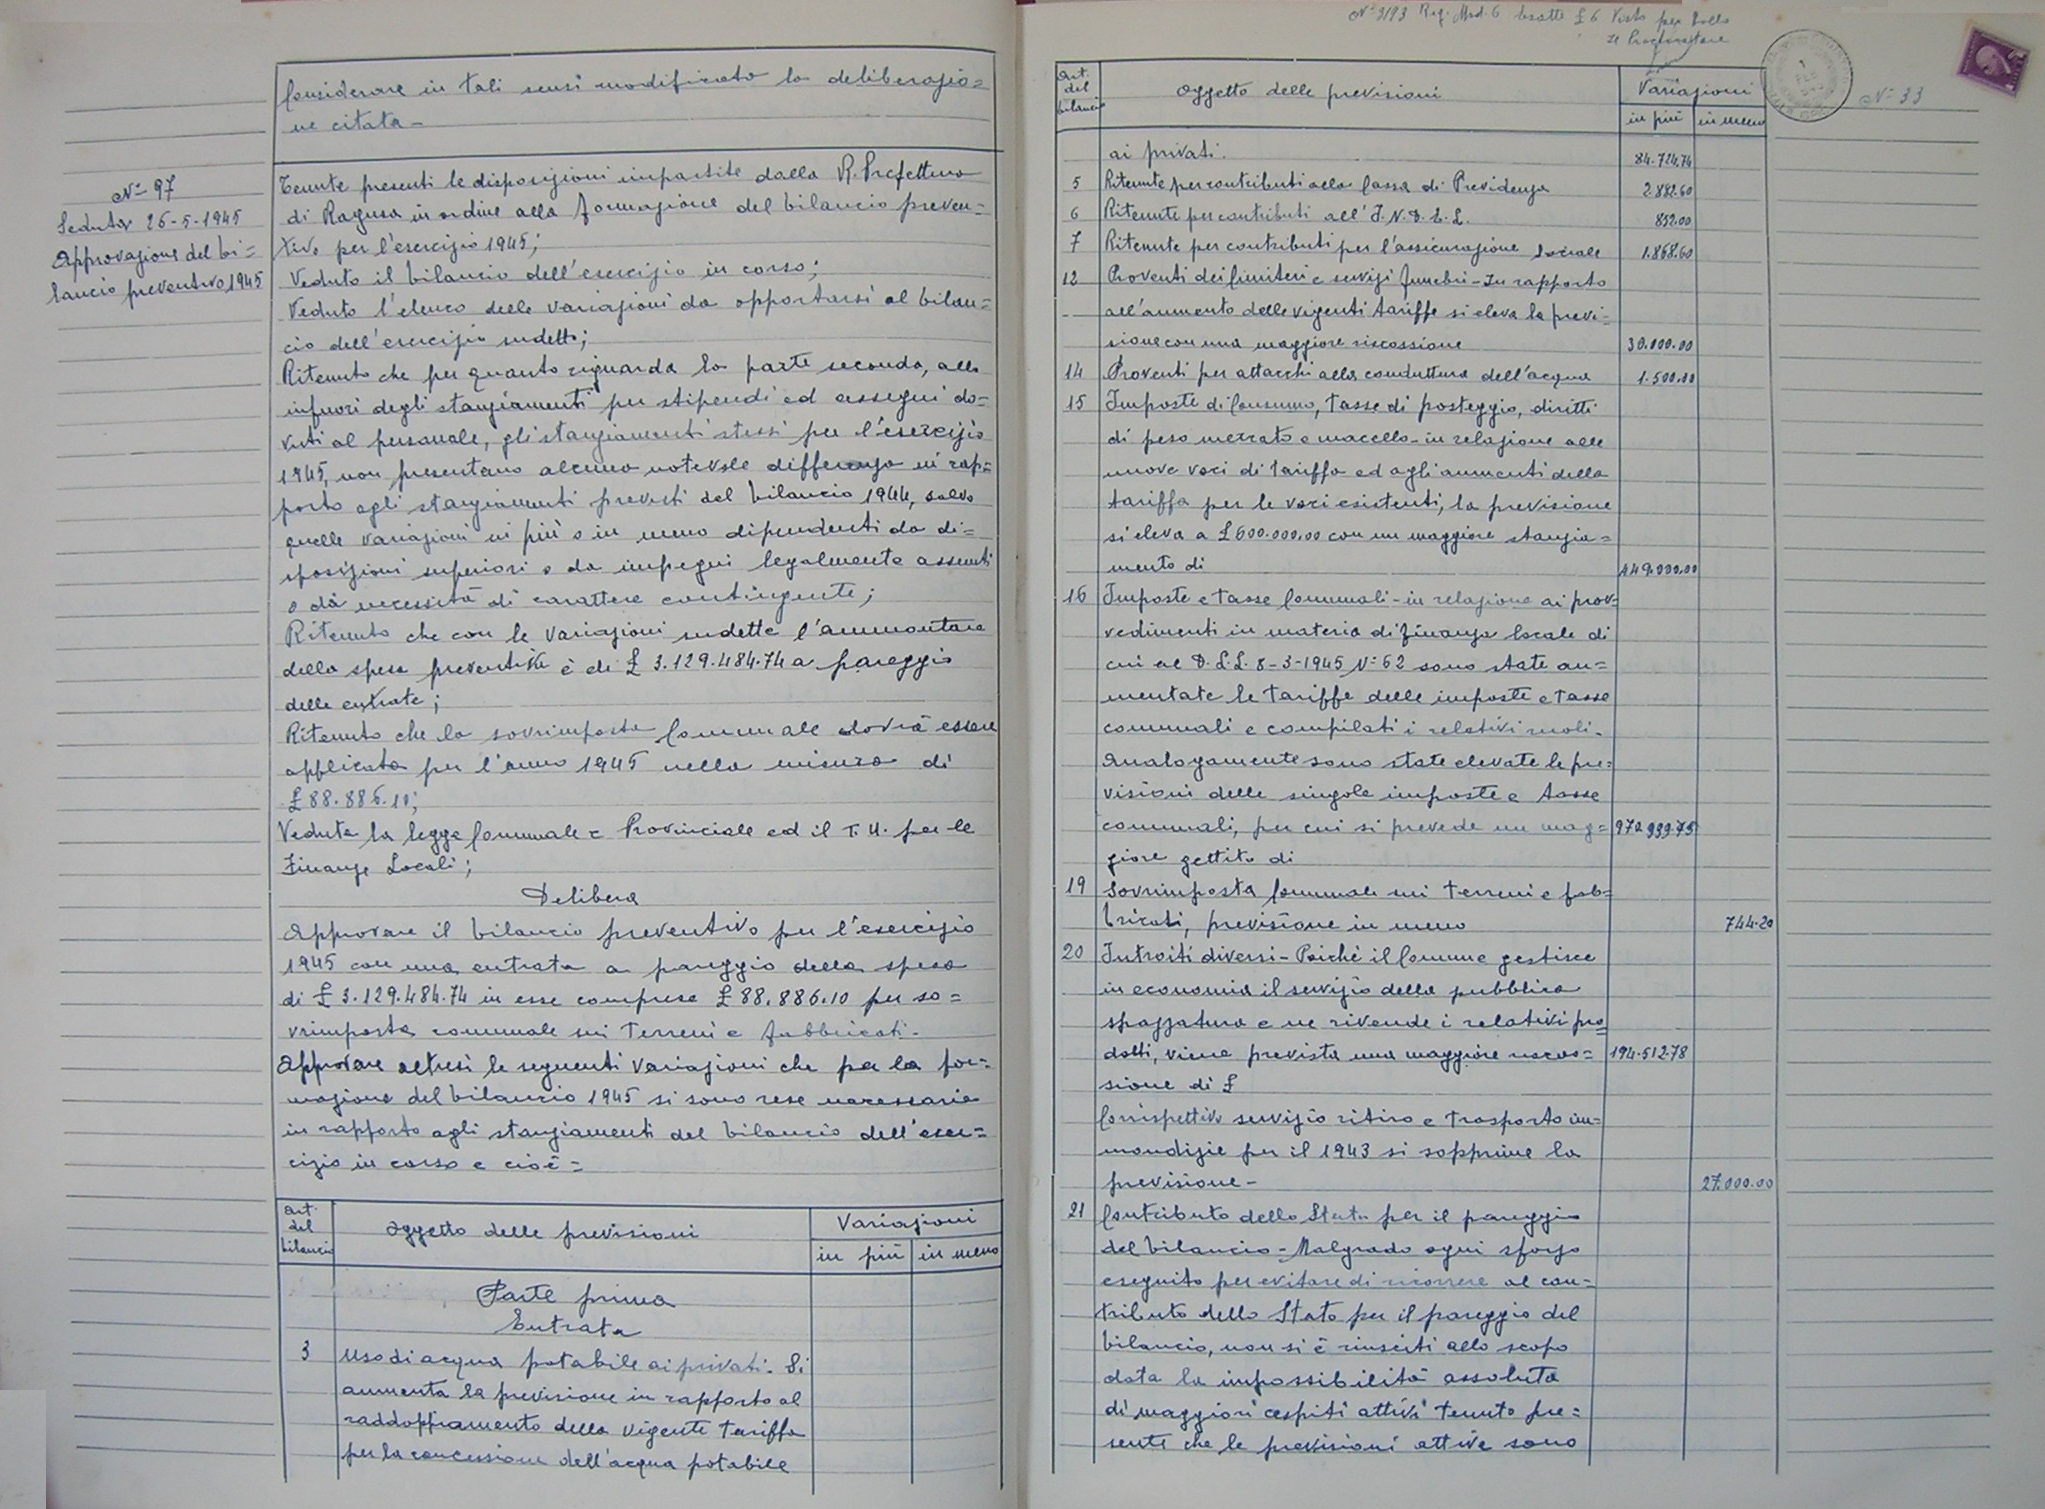 Considerare in tali sensi modificata la deliberazio=
ne citata -
N° 97
Seduta 26-5-1945
Approvazione del bi=
lancio preventivo 1945
Tenute presenti le disposizioni impartite dalla R. Prefettura
di Ragusa in ordine alla formazione del bilancio preven=
tivo per l'esercizio 1945;
Veduto il bilancio dell'esercizio in corso;
Veduto l'elenco delle variazioni da apportarsi al bilan=
cio dell'esercizio sudetto;
Ritenuto che per quanto riguarda la parte seconda, alla
infuori degli stanziamenti per stipendi ed assegni do=
vuti al personale, gli stanziamenti stessi per l'esercizio
1945, non presentano alcuna notevole differenza in rap=
porto agli stanziamenti previsti del bilancio 1944, salvo
quelle variazioni in più o in meno dipendenti da di=
sposizioni superiori o da impegni legalmente assunti
o da necessità di carattere contingente;
Ritenuto che con le variazioni sudette l'ammontare
della spesa preventiva è di £ 3.129.484.74 a pareggio
delle entrate;
Ritenuto che la sovrimposta Comunale dovrà essere
applicata per l'anno 1945 nella misura di
£ 88.886.10;
Veduta la legge Comunale e Provinciale ed il T.U. per le
Finanze Locali;
Delibera
Approvare il bilancio preventivo per l'esercizio
1945 con una entrata a pareggio della spesa
di £ 3.129.484.74 in esse comprese £ 88.886.10 per so=
vrimposta comunale sui Terreni e fabbricati -
Approvare altresì le seguenti variazioni che per la for=
mazione del bilancio 1945 si sono rese necessarie
in rapporto agli stanziamenti del bilancio dell'eser=
cizio in corso e cioè =
Art. del bilancio
Oggetto delle previsioni
Variazioni
in più in meno
Parte prima
Entrata
3 Uso di acqua potabile ai privati - Si
aumenta la previsione in rapporto al
raddoppiamento della vigente tariffa
per la concessione dell'acqua potabile
N° 3193 Reg. Mod. 6 Esatte £ 6 Visto per bollo
Il Procuratore
N° 33
Art. del bilancio
Oggetto delle previsioni
Variazioni
in più in meno
ai privati. 84.724.74
5 Ritenute per contributi alla Cassa di Previdenza 2.882.60
6 Ritenute per contributi all'I.N.D.E.L. 852.00
7 Ritenute per contributi per l'assicurazione Sociale 1.868.60
12 Proventi dei Cimiteri e servizi funebri - In rapporto
all'aumento delle vigenti tariffe si eleva la previ=
sione con una maggiore riscossione 30.000.00
14 Proventi per attacchi alla conduttura dell'acqua 1.500.00
15 Imposte di Consumo, tasse di posteggio, diritti
di peso mercato e macello - in relazione alle
nuove voci di tariffa ed agli aumenti della
tariffa per le voci esistenti, la previsione
si eleva a £ 600.000.00 con un maggiore stanzia=
mento di 449.000.00
16 Imposte e tasse Comunali - in relazione ai prov=
vedimenti in materia di finanza locale di
cui al D.L.L. 8-3-1945 N° 62 sono state au=
mentate le tariffe delle imposte e tasse
comunali e compilati i relativi ruoli.
Analogamente sono state elevate le pre=
visioni delle singole imposte e tasse
comunali, per cui si prevede un mag= 972.939.75
giore gettito di
19 Sovrimposta Comunale sui terreni e fab=
bricati, previsione in meno 744.20
20 Introiti diversi - Poiché il Comune gestisce
in economia il servizio della pubblica
spazzatura e ne rivende i relativi pro=
dotti, viene prevista una maggiore riscos= 194.512.78
sione di £
Corrispettivo servizio ritiro e trasporto im=
mondizie per il 1943 si sopprime la
previsione - 27.000.00
21 Contributo dello Stato per il pareggio
del bilancio - Malgrado ogni sforzo
eseguito per evitare di ricorrere al con=
tributo dello Stato per il pareggio del
bilancio, non si è riusciti allo scopo
data la impossibilità assoluta
di maggiori cespiti attivi tenuto pre=
sente che le previsioni attive sono